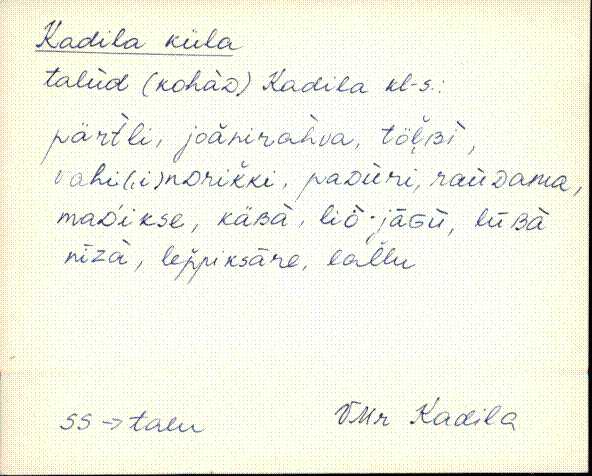 Kadila küla
talùd (kohàD) Kadila kl-s.:
pärt̀li, joǎnirahva, tȫl̬Bì,
vahi(,i)nDrik̆ki, paDùri, raùDama,
maD́ikse, käBà, liò·jäGù, lùBà
nīzà, lep̆piksāre, lal̆lu
SS → talu
VMr Kadila